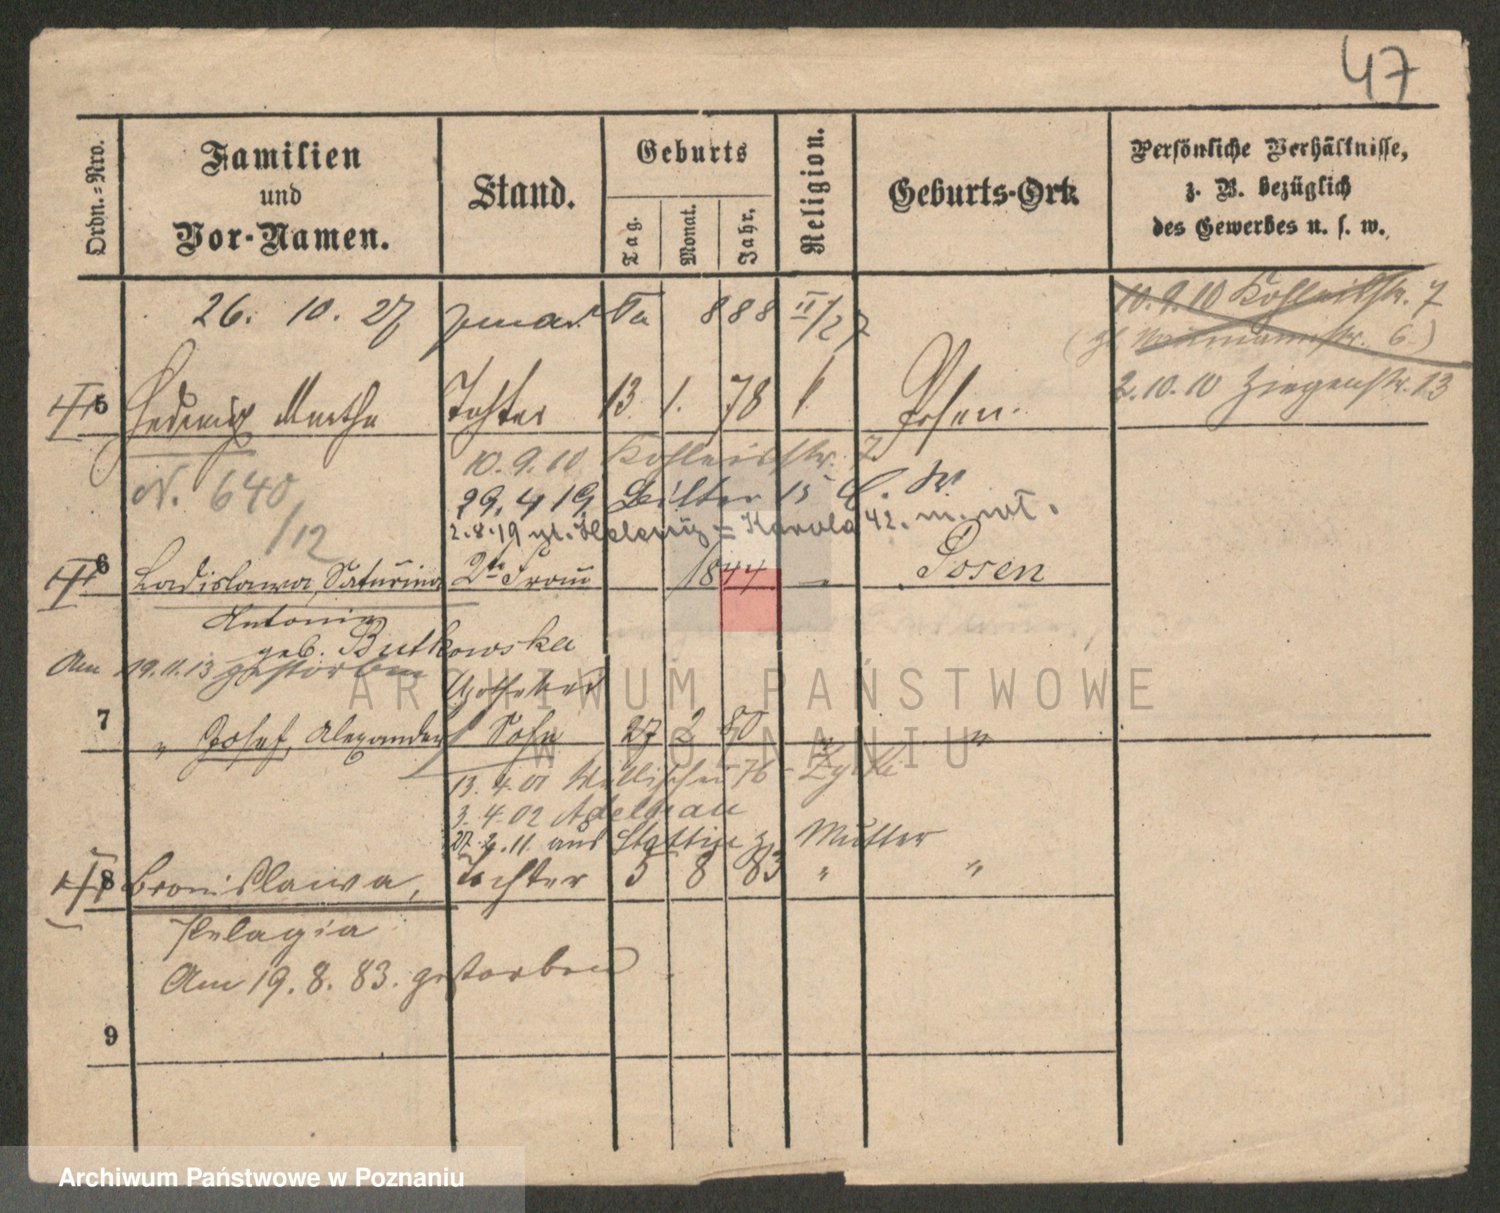 47
Ordn.=Nro.
Familien
und
Vor-Namen.
Stand.
Geburts
Tag.
Monat.
Jahr.
Religion.
Geburts-Ort.
Persönliche Verhältnisse,
z. B. bezüglich
des Gewerbes u. s. w.
26. 10. 27 888 II/27
10.9.10 Kohleisstr. 7
Naumannstr. 6.)
2.10.10 Ziegenstr. 13
5 Hedwig Martha Tochter 13 1. 78 k. Posen.
10.9.10 Kohleisstr. 7
N. 640/12
29.4.19 15
2.8.19 Karola 42.
6 Ladislawa, Saturina 2te Frau 1844 " Posen
Antonia
geb. Butkowska
Am 19.11.13 gestorben
7 " Josef, Alexander Sohn 27 2 80 " "
13.4.01 76
3.4.02 Adelnau
27.2.11 aus Stettin z. Mutter
8 Bronislawa, Tochter 5 8 83 " "
Pelagia
Am 19.8.83. gestorben
9
ARCHIWUM PAŃSTWOWE
W POZNANIU
Archiwum Państwowe w Poznaniu